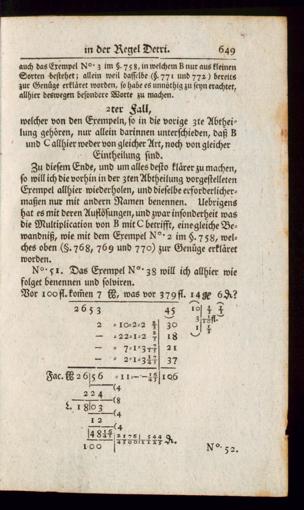 in der Regel Detri. 649
auch das Exempel No. 3 im §. 758, in welchem B nur aus kleinen
Sorten bestehet; allein weil dasselbe (§. 771 und 772) bereits
zur Genüge erkläret worden, so habe es unnöthig zu seyn erachtet,
allhier deswegen besondere Worte zu machen.
2ter Fall,
welcher von den Exempeln, so in die vorige 3te Abthei-
lung gehören, nur allein darinnen unterschieden, daß B
und C allhier weder von gleicher Art, noch von gleicher
Eintheilung sind.
Zu diesem Ende, und um alles desto klärer zu machen,
so will ich die vorhin in der 3ten Abtheilung vorgestelleten
Exempel allhier wiederholen, und dieselbe erforderlicher-
maßen nur mit andern Namen benennen. Uebrigens
hat es mit deren Auflösungen, und zwar insonderheit was
die Multiplication von B mit C betrifft, eine gleiche Be-
wandniß, wie mit dem Exempel No. 2 im §. 758, wel-
ches oben (§. 768, 769 und 770) zur Genüge erkläret
worden.
No. 51. Das Exempel No. 38 will ich allhier wie
folget benennen und solviren.
Vor 100 fl. kom̃en 7 ℔, was vor 379 fl. 14
2653 45
2 30
— 18
— 21
— 37
Fac. ℔ 26|56 106
224
(4
(8
L. 18|03
(4
12
(4
100
No. 52.